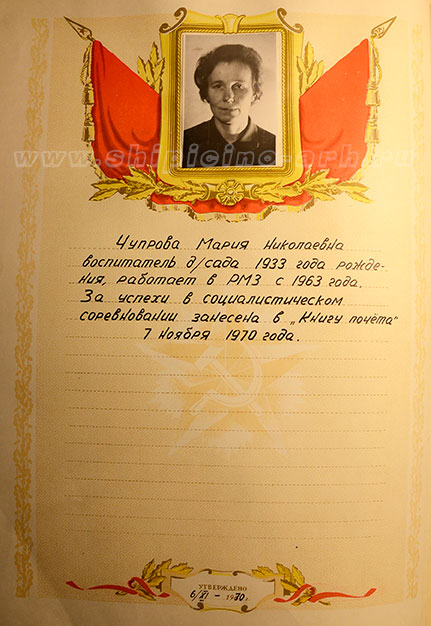 www.shipicino-arh.ru
Чупрова Мария Николаевна
воспитатель д/сада 1933 года рожде-
ния, работает в РМЗ с 1963 года.
За успехи в социалистическом
соревновании занесена в „Книгу почёта"
7 ноября 1970 года.
УТВЕРЖДЕНО
6/XI - 1970г.